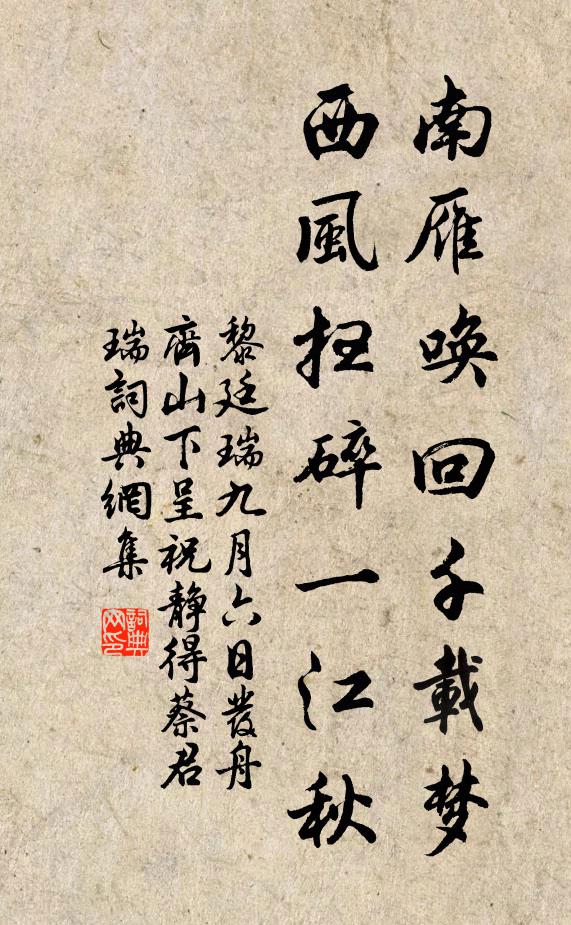 南雁喚回千載梦
西風扫碎一江秋
黎廷瑞九月六日發舟
齊山下呈祝静得蔡君
瑞詞典網集
詞典
网印